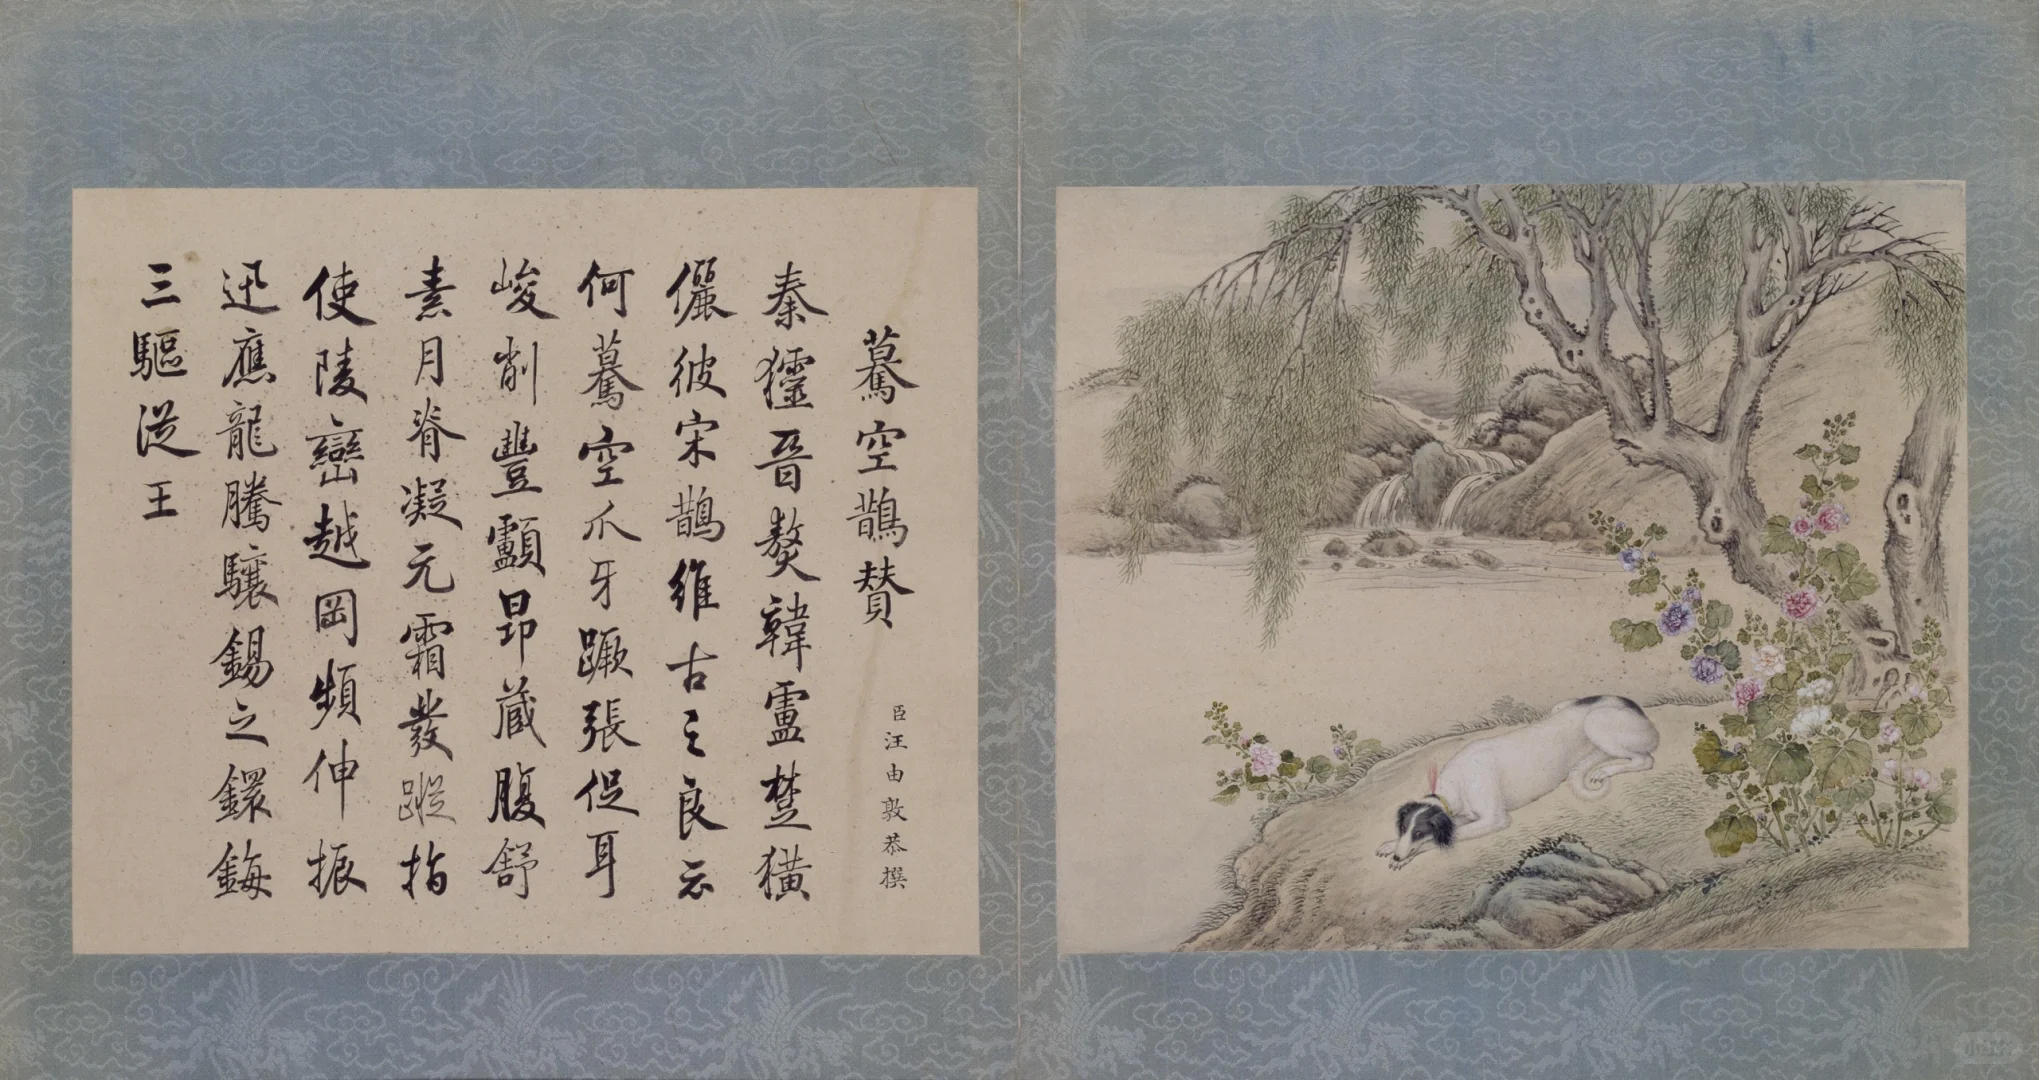 驀空鵲贊
臣汪由敦恭撰
秦獞晉獒韓盧楚獚
儷彼宋鵲維古之良云
何驀空爪牙蹶張促耳
峻削豐顱昂藏腹舒
素月脊凝元霜發蹤指
使陵巒越岡頻伸振
迅應龍騰驤錫之鐶鋂
三驅從王